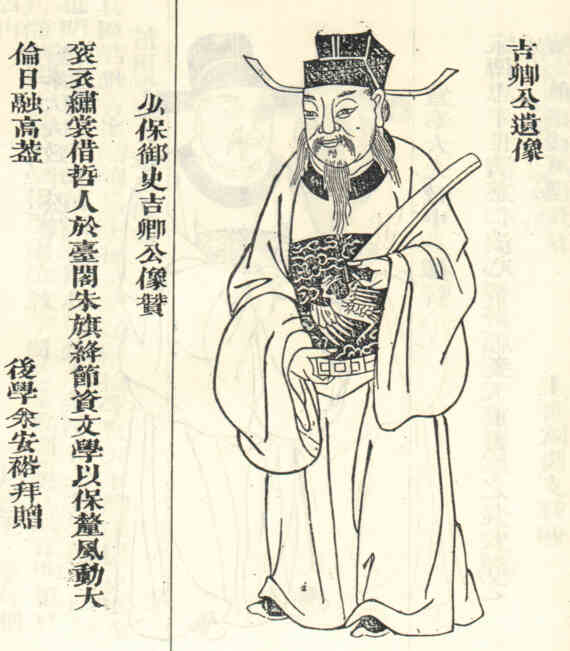 吉卿公遺像
少保御史吉卿公像贊
衮衣繡裳借哲人於臺閣朱旗絳節資文學以保釐風動大
倫日融高葢
後學余安裕拜贈